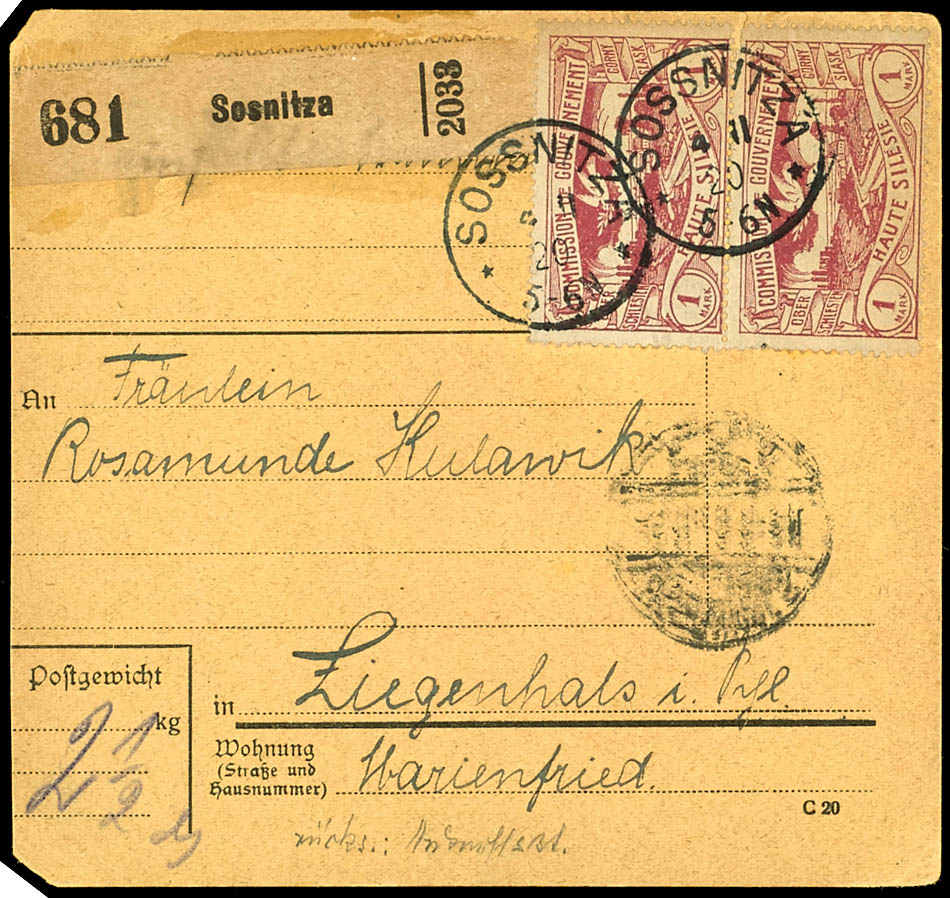 681 Sosnitza 2033
COMMISSION DE GOUVERNEMENT
HAUTE SILESIE
GÓRNY ŚLĄSK
OBER SCHLESIEN
1 MARK
1 MARK
COMMISSION DE GOUVERNEMENT
HAUTE SILESIE
GÓRNY ŚLĄSK
OBER SCHLESIEN
1 MARK
1 MARK
SOSSNITZA
11
20
5-6N
SOSSNITZA
4 11
20
5-6N
An Fräulein
Rosamunde Kulawik
in Ziegenhals i.
Postgewicht
2 1/2 kg
Wohnung
(Straße und
Hausnummer)
Marienfried.
C 20
rücks.: